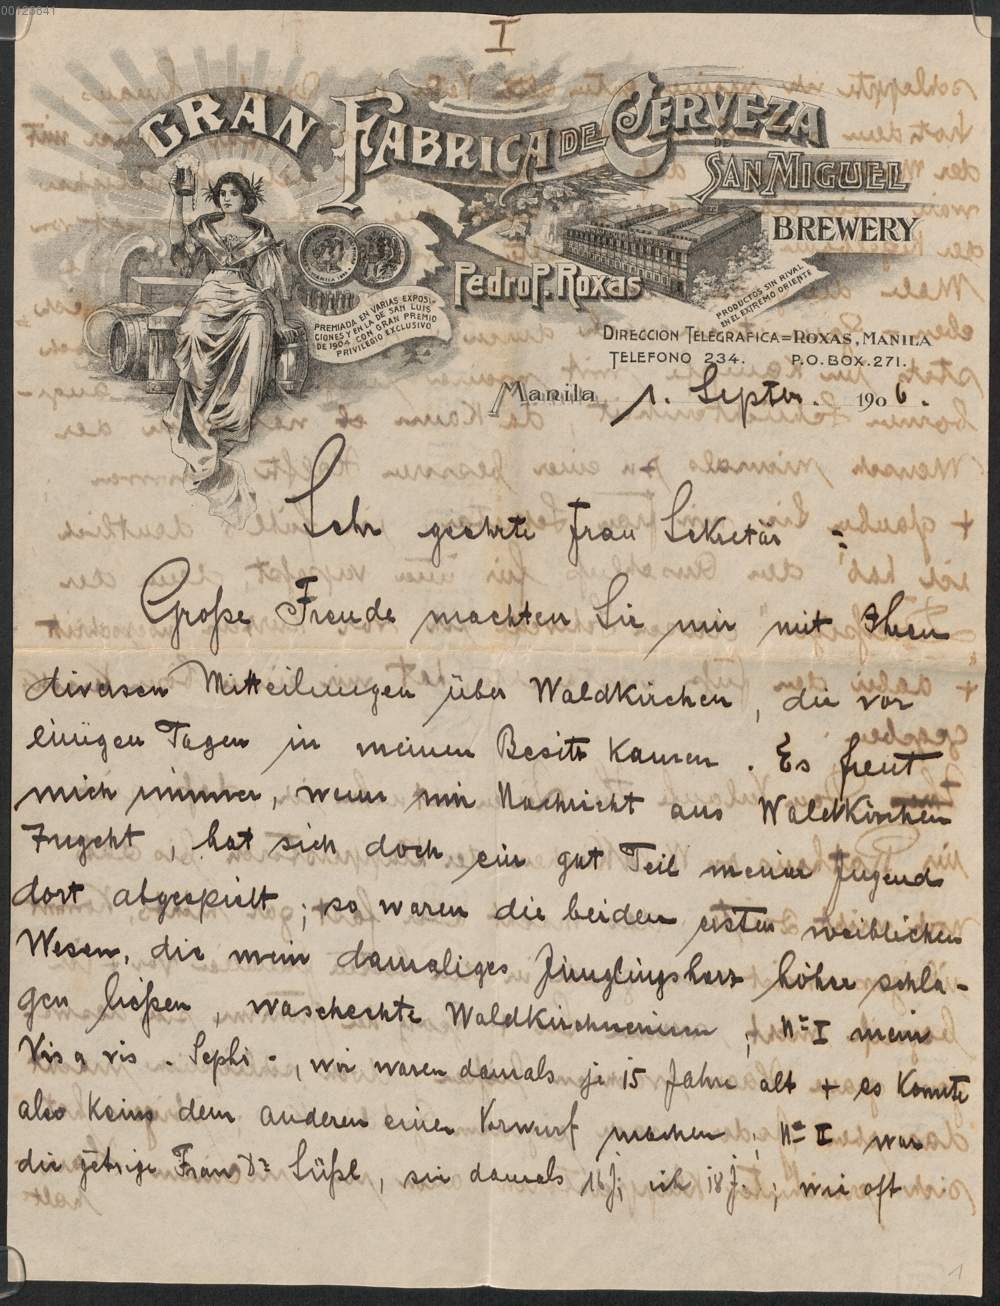 00129841
I
GRAN FABRICA DE CERVEZA
DE
SAN MIGUEL
BREWERY
Pedro P. Roxas
PREMIADA EN VARIAS EXPOSI-
CIONES Y EN LA DE SAN LUIS
DE 1904 CON GRAN PREMIO
PRIVILEGIO EXCLUSIVO
PRODUCTOS SIN RIVAL
EN EL EXTREMO ORIENTE
DIRECCION TELEGRAFICA=ROXAS, MANILA
TELEFONO 234. P.O. BOX. 271.
Manila 1. Septbr. 1906.
Sehr geehrte Frau Sekretär :
Große Freude machten Sie mir mit Ihren
diversen Mitteilungen über Waldkirchen, die vor
einigen Tagen in meinen Besitz kamen. Es freut
mich immer, wenn mir Nachricht aus Waldkirchen
zugeht, hat sich doch ein gut Teil meiner Jugend
dort abgespielt; so waren die beiden ersten weiblichen
Wesen, die mein damaliges Jünglingsherz höher schla-
gen ließen, waschechte Waldkirchnerinnen, No I mein
Vis a vis - Sephi -, wir waren damals je 15 Jahre alt + es konnte
also keins dem anderen einen Vorwurf machen, No II war
die jetzige Frau Dr Süßl, sie damals 16 J; ich 18 J.; wie oft
1